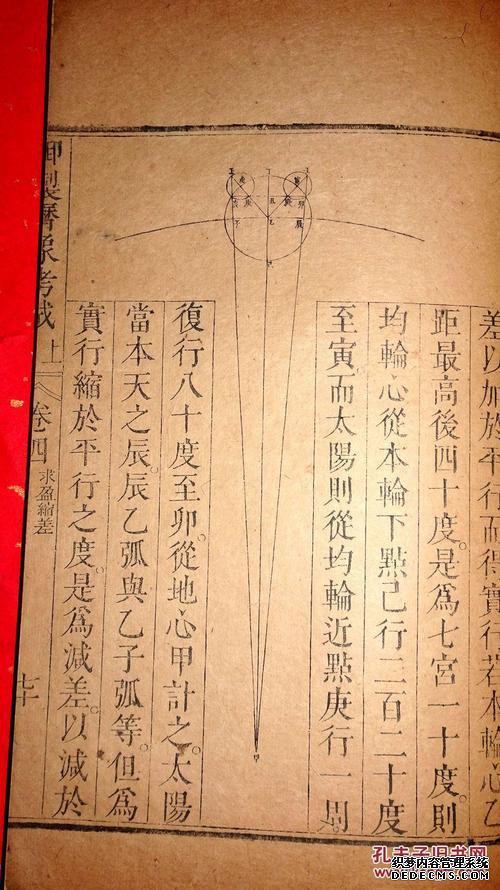 差以加於平行而得實行若本輪心乙
距最高後四十度。是爲七宮一十度。則
均輪心從本輪下點己行二百二十度
至寅。而太陽則從均輪近點庚行一周。
復行八十度至卯。從地心甲計之。太陽
當本天之辰。辰乙弧與乙子弧等。但爲
實行縮於平行之度。是爲減差。以減於
御製曆象考成 上 卷四 求盈縮差
甲
孔夫子旧书网
织梦内容管理系统
DEDECMS.COM